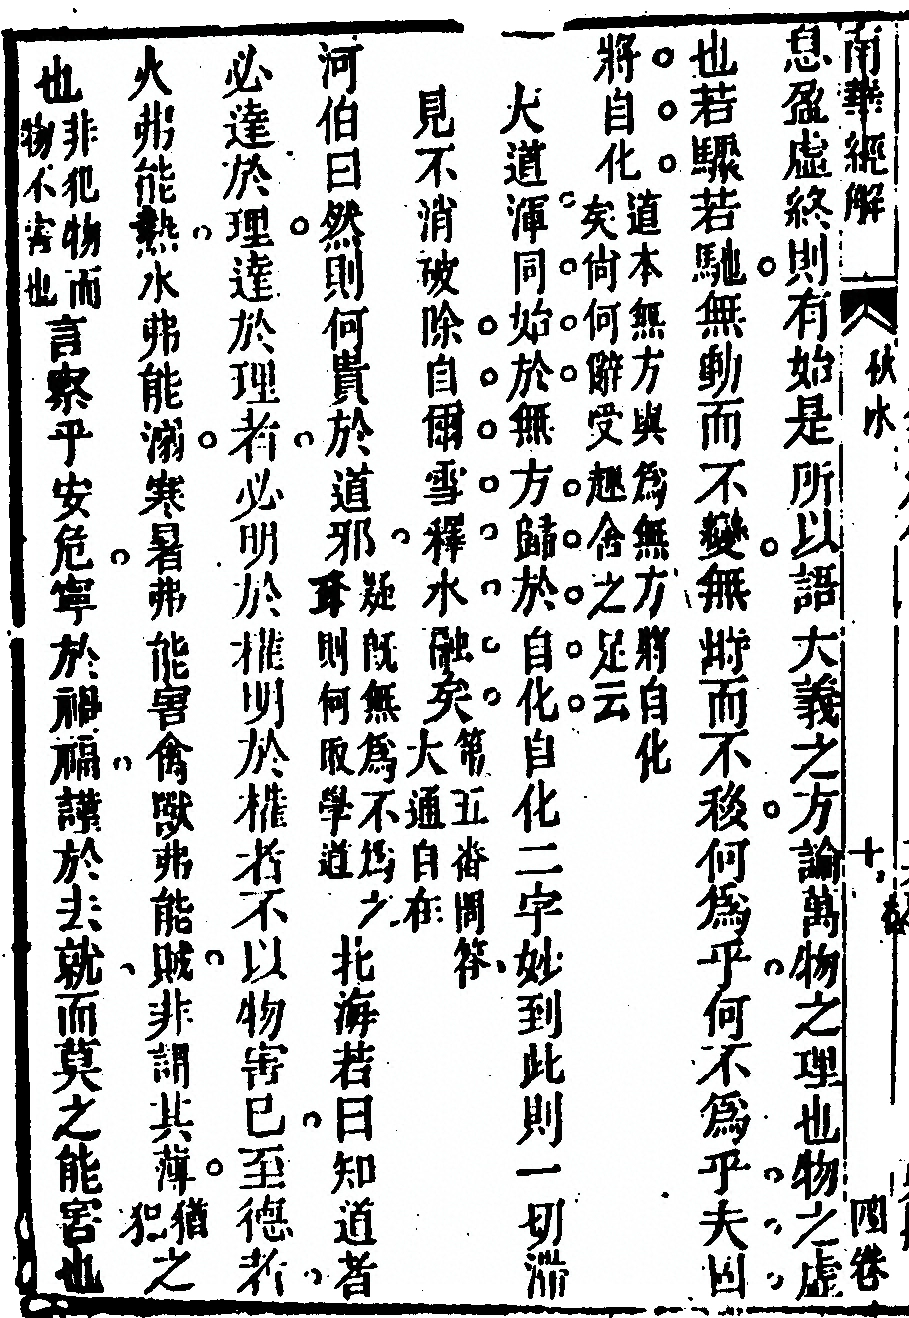 南華經解 秋水 十 四卷
息盈虛終則有始是所以語大義之方論萬物之理也物之虛
也若驟若馳無動而不變無時而不移何為乎何不為乎夫固
將自化道本無方與為無方將自化矣尚何辭受趣舍之足云
大道渾同始於無方歸於自化自化二字妙到此則一切滯
見不消破除自爾雪釋水融矣第五番問答大通自在
河伯曰然則何貴於道邪疑既無為不為之耳則何取學道北海若曰知道者
必達於理達於理者必明於權明於權者不以物害已至德者
火弗能熱水弗能溺寒暑弗能害禽獸弗能賊非謂其薄猶之犯
也非犯物而物不害也言察乎安危寧於禍福謹於去就而莫之能害也